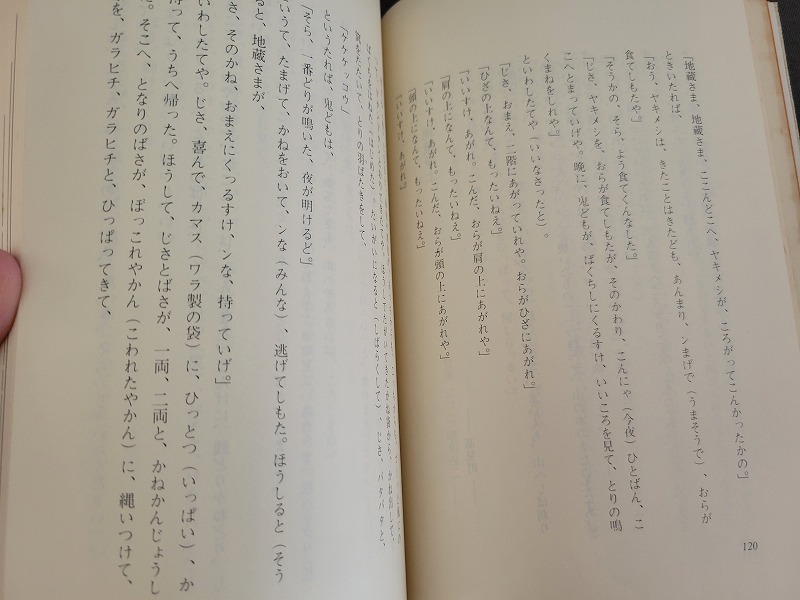 「地蔵さま、地蔵さま、ここんどこへ、ヤキメシが、ころがってこんかったかの。」
ときいたれば、
「おう、ヤキメシは、きたことはきたども、あんまり、ンまげで（うまそうで）、おらが
食てしもたや。」
「そうかの、そら、よう食てくんなした。」
「じさ、ヤキメシを、おらが食てしもたが、そのかわり、こんにゃ（今夜）ひとばん、こ
こへとまっていげや。晩に、鬼どもが、ばくちしにくるすけ、いいころを見て、とりの鳴
くまねをしれや。」
といわしたてや（いいなさったと）。
「じさ、おまえ、二階にあがっていれや。おらがひざにあがれ。」
「ひざの上になんて、もったいねえ。」
「いいすけ、あがれ。こんだ、おらが肩の上にあがれや。」
「肩の上になんて、もったいねえ。」
「いいすけ、あがれ。こんだ、おらが頭の上にあがれや。」
「頭の上になんて、もったいねえ。」
「いいすけ、あがれ。」
たいがいになると（しばらくして）、じさ、バタバタと、
とりの羽ばたきをして、
「ケケケッコウ」
というたれば、鬼どもは、
「そら、一番どりが鳴いた、夜が明けるど。」
というて、たまげて、かねをおいて、ンな（みんな）、逃げてしもた。ほうしると（そう
ると、地蔵さまが、
さ、そのかね、おまえにくっるすけ、ンな、持っていげ。」
いわしたてや。じさ、喜んで、カマス（ワラ製の袋）に、ひっとつ（いっぱい）、か
持って、うちへ帰った。ほうして、じさとばさが、一両、二両と、かねかんじょうし
た。そこへ、となりのばさが、ぼっこれやかん（こわれたやかん）に、縄いつけて、
を、ガラヒチ、ガラヒチと、ひっぱってきて、
120